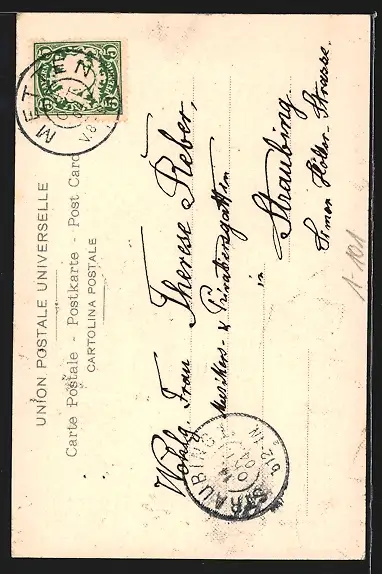 UNION POSTALE UNIVERSELLE
Carte Postale - Postkarte - Post Card
CARTOLINA POSTALE
5 5
5 5
MET
Wohlg. Frau Therese Reber,
Musikers- & Privatiersgattin
in
Straubing
Simon Höller-Strasse.
STRAUBING
1-101